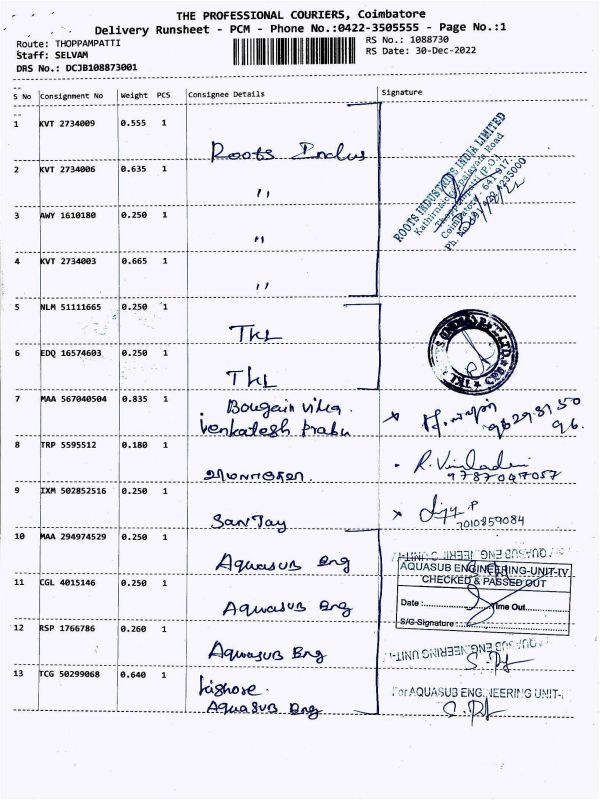 THE PROFESSIONAL COURIERS, Coimbatore
Delivery Runsheet - PCM - Phone No.:0422-3505555 - Page No.:1
Route: THOPPAMPATTI
Staff: SELVAM
DRS No.: DCJB108873001
RS No.: 1088730
RS Date: 30-Dec-2022
S No Consignment No Weight PCS Consignee Details Signature
1 KVT 2734009 0.555 1
Roots Indus
2 KVT 2734006 0.635 1
''
3 AWY 1610180 0.250 1
''
4 KVT 2734003 0.665 1
''
ROOTS INDUSTRIES INDIA LIMITED
5 NLM 51111665 0.250 1
TKL
6 EDQ 16574603 0.250 1
TKL
7 MAA 567040504 0.835 1
Bougain villa.
Venkatesh Prabu
8 TRP 5595512 0.180 1
R.
9 IXM 502852516 0.250 1
Sanjay
7010859084
10 MAA 294974529 0.250 1
Aquasub Eng
11 CGL 4015146 0.250 1
Aquasub Eng
AQUASUB ENGINEERING-UNIT-IV
CHECKED & PASSED OUT
Date : Time Out
S/G Signature :
12 RSP 1766786 0.260 1
Aquasub Eng
13 TCG 50299068 0.640 1
kishore.
Aquasub Eng
For AQUASUB ENGINEERING UNIT-